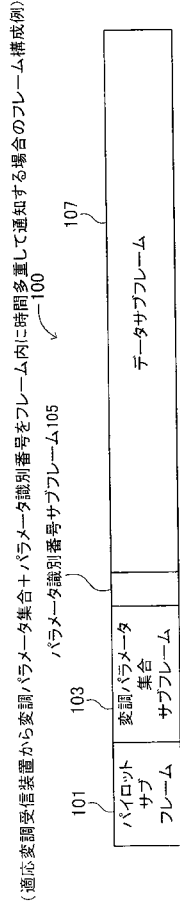 (適応変調受信装置から変調パラメータ集合＋パラメータ識別番号をフレーム内に時間多重して通知する場合のフレーム構成例)
100
パラメータ識別番号サブフレーム105
101
103
107
パイロット
サブ
フレーム
変調パラメータ
集合
サブフレーム
データサブフレーム